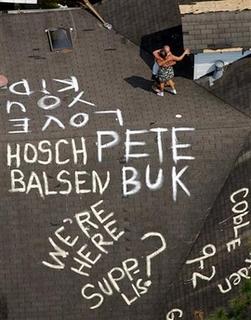 LOVE
YOU
KID
HOSCH PETE
BALSEN BUK
WE'RE
HERE
SUPP
LIS?
COBLE
92